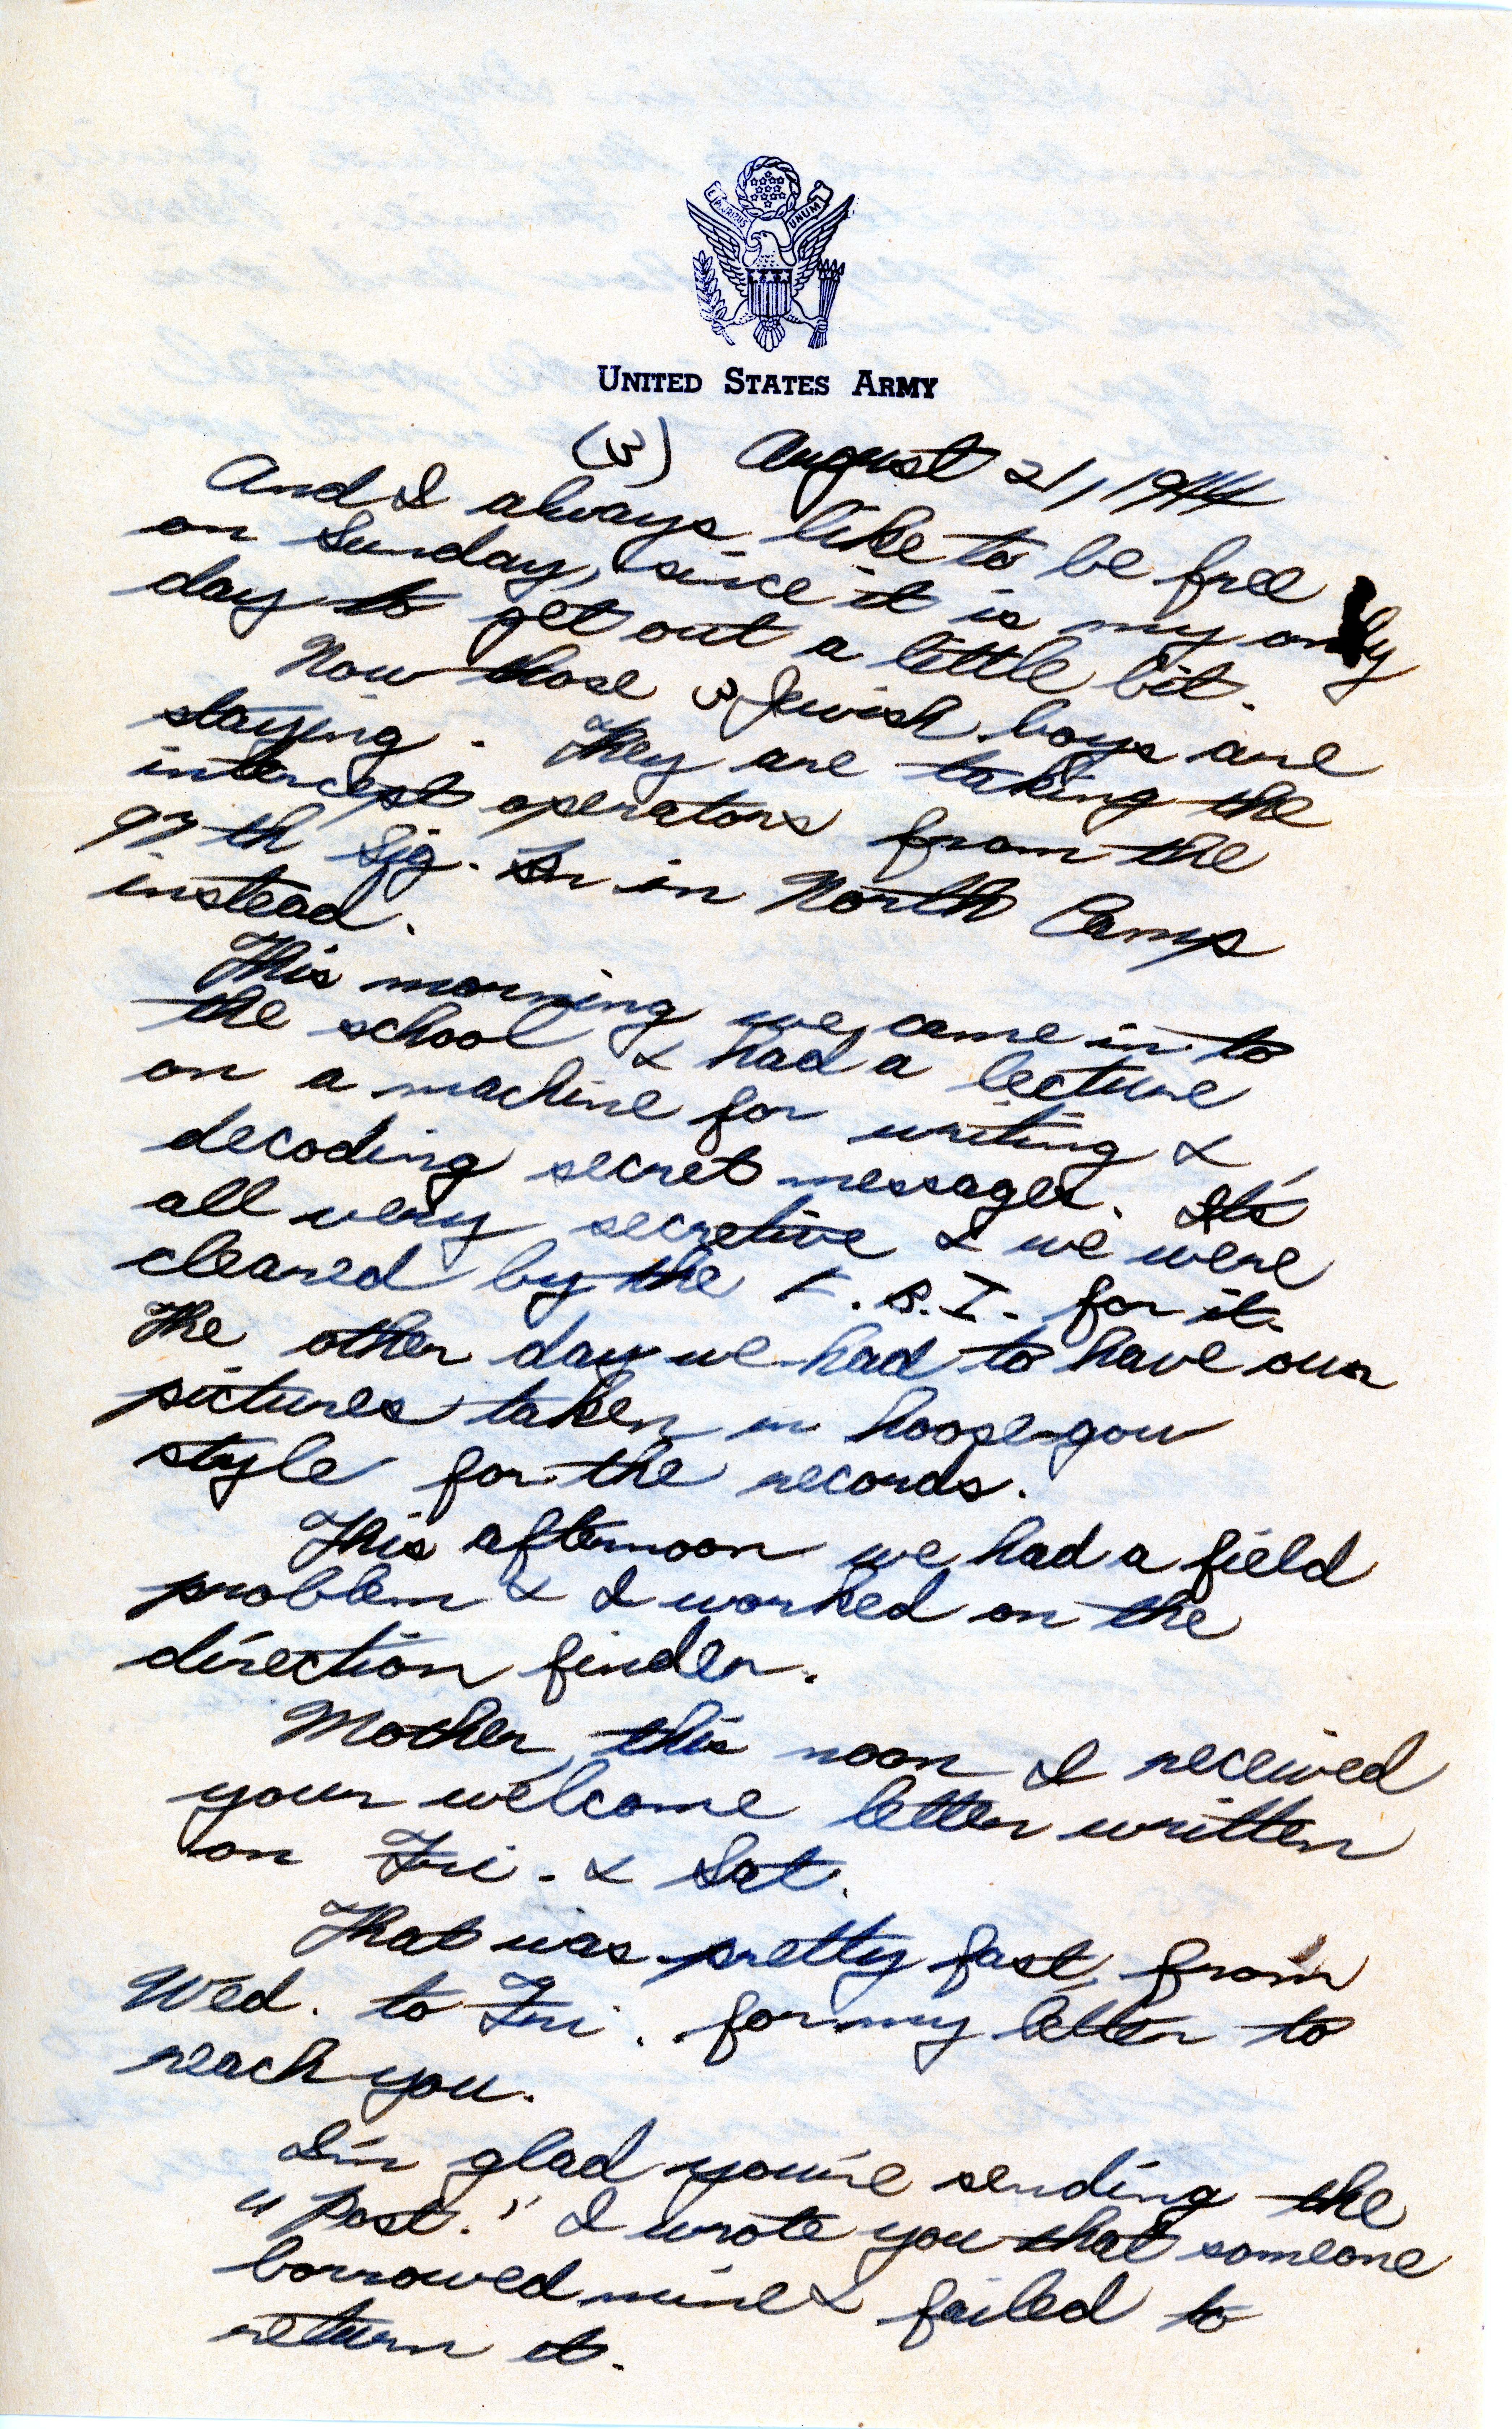 E PLURIBUS UNUM
UNITED STATES ARMY
(3) August 21, 1944
And I always like to be free
on Sunday, since it is my only
day to get out a little bit.
Now those 3 Jewish boys are
staying. They are taking the
intercept operators from the
97th Sig. in North Camp
instead.
This morning we came in to
the school & had a lecture
on a machine for writing &
decoding secret messages. It's
all very secretive & we were
cleared by the F.B.I. for it.
The other day we had to have our
pictures taken in hoose-gow
style for the records.
This afternoon we had a field
problem & I worked on the
direction finder.
Mother, this noon I received
your welcome letter written
on Fri. & Sat.
That was pretty fast, from
Wed. to Fri. for my letter to
reach you.
I'm glad you're sending the
"Post." I wrote you that someone
borrowed mine & failed to
return it.